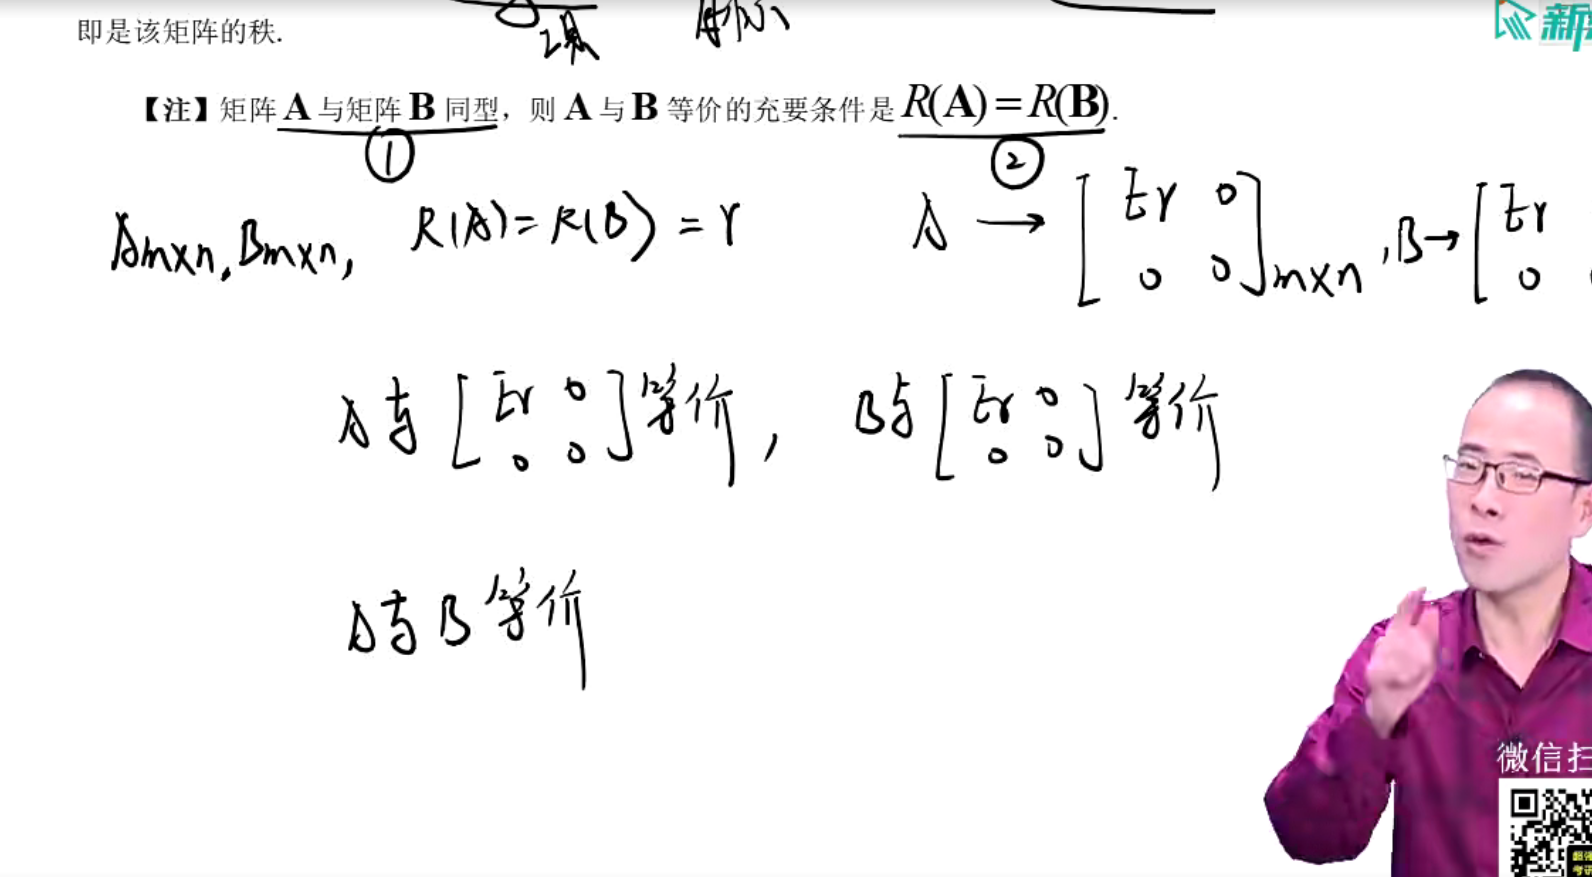 即是该矩阵的秩.
新
【注】矩阵 A 与矩阵 B 同型，则 A 与 B 等价的充要条件是 R(A)=R(B).
① ②
Am×n, Bm×n, R(A)=R(B)=r A → [Er 0 0 0]m×n, B→ [Er 0
A与 [Er 0 0 0] 等价, B与 [Er 0 0 0] 等价
A与B等价
微信扫